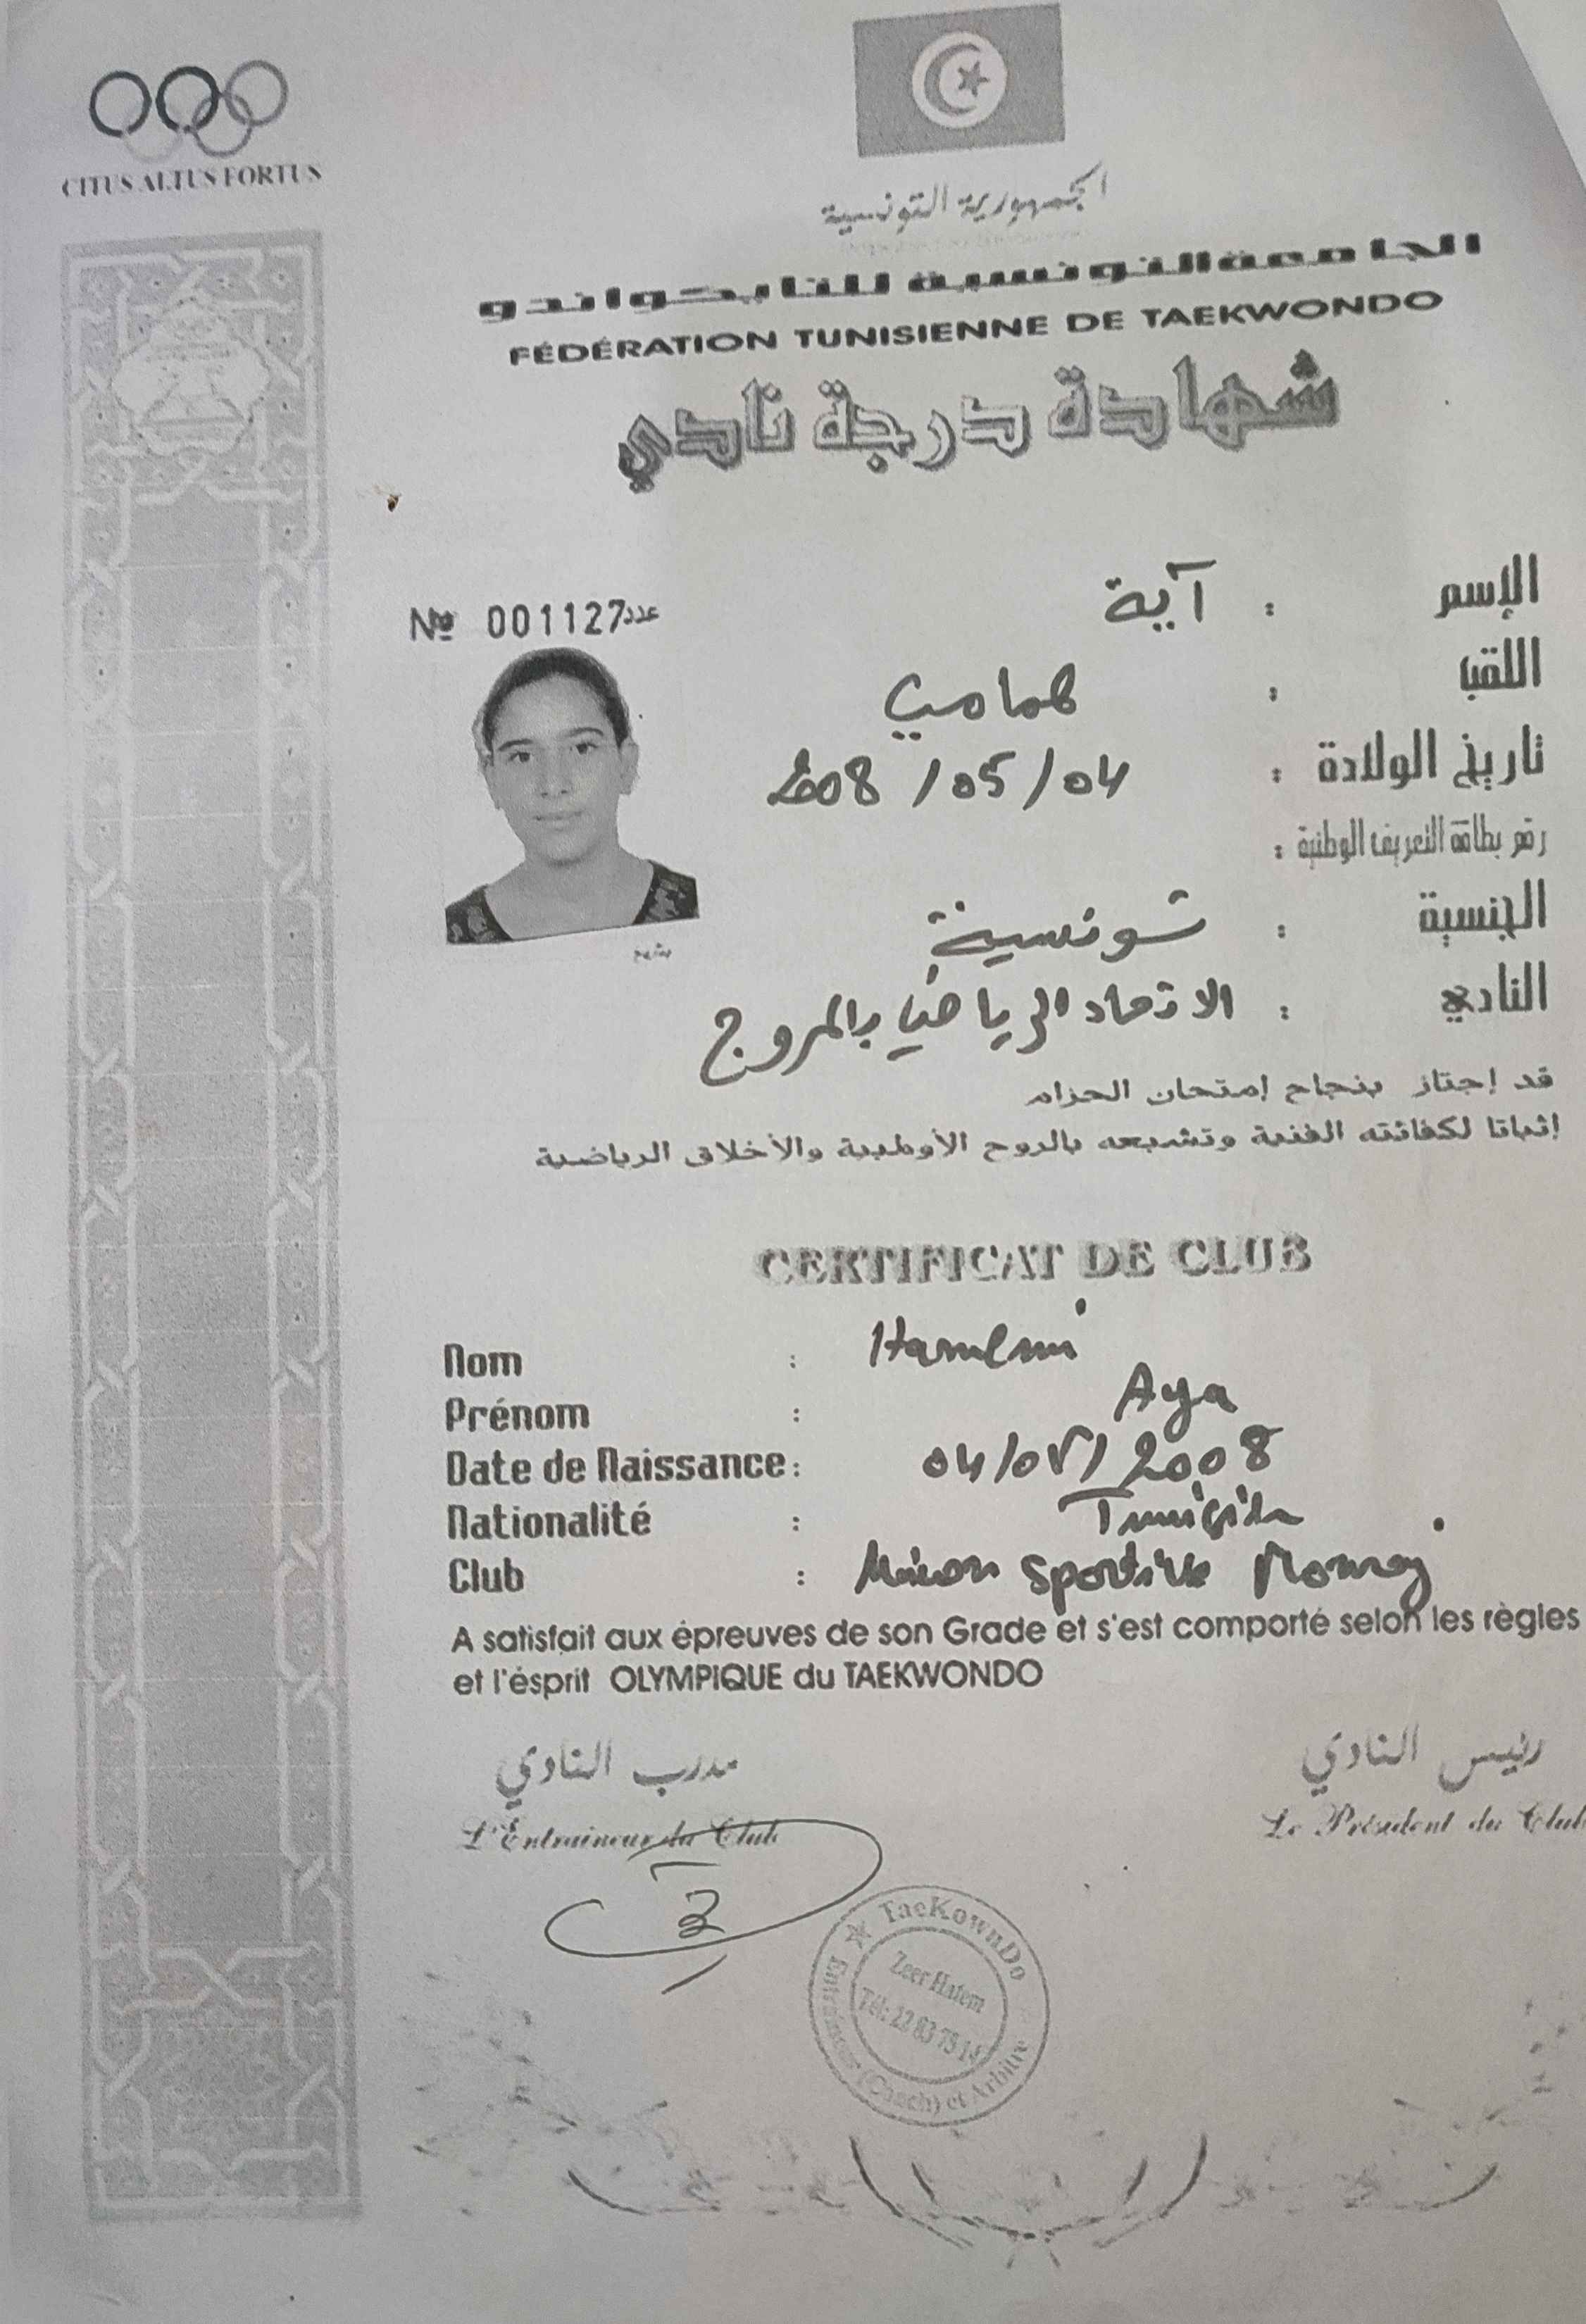 CITUS ALTUS FORTUS
الجمهورية التونسية
الجامعة التونسية للتايكواندو
FÉDÉRATION TUNISIENNE DE TAEKWONDO
شهادة درجة نادي
Nº 001127 عدد
الإسم : آية
اللقب : همامي
تاريخ الولادة : 04/05/2008
رقم بطاقة التعريف الوطنية :
الجنسية : تونسية
النادي : الاتحاد الرياضي بالمروج
قد إجتاز بنجاح إمتحان الحزام
إثباتا لكفائته الفنية وتشبعه بالروح الأولمبية والأخلاق الرياضية
CERTIFICAT DE CLUB
Nom : Hamemi
Prénom : Aya
Date de Naissance : 04/05/2008
Nationalité :
Club : Sportive Mourouj
A satisfait aux épreuves de son Grade et s'est comporté selon les règles
et l'ésprit OLYMPIQUE du TAEKWONDO
مدرب النادي
رئيس النادي
L'Entraineur du Club
Le Président du Club
TaeKownDo
Zeer Hatem
Tél: 22 83 75
Entraineur (Coach) et Arbitre